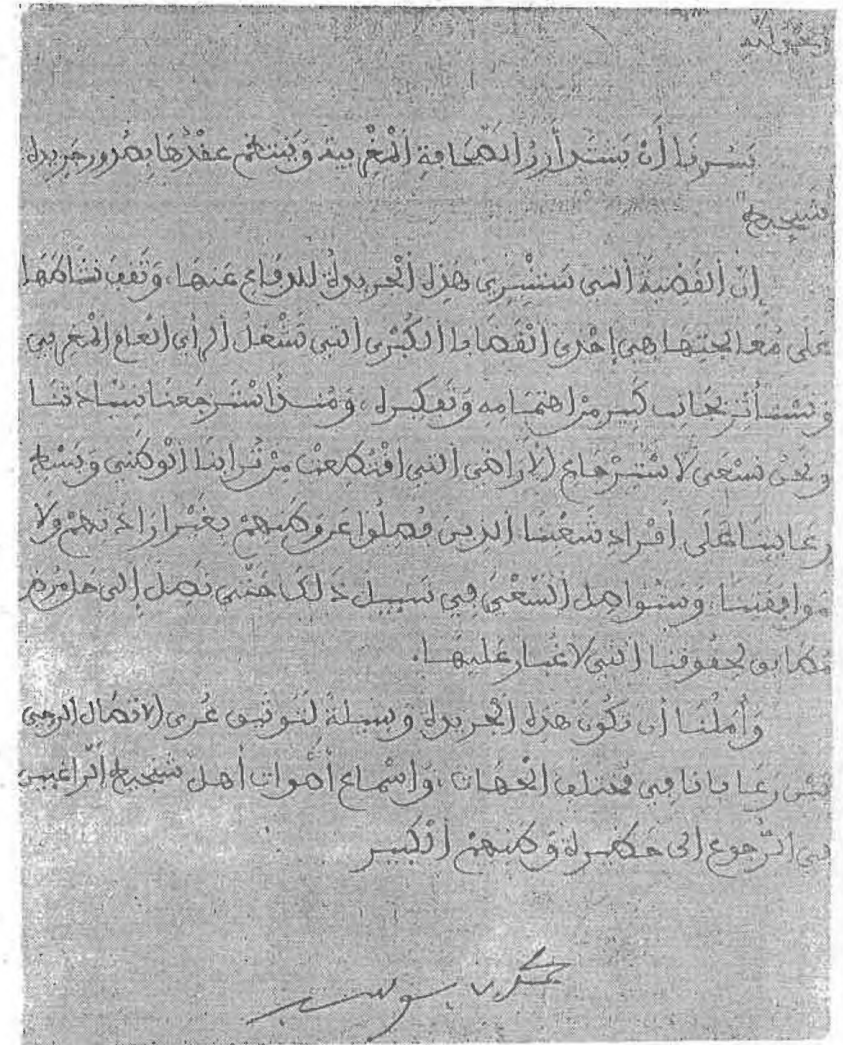 الحمد لله
يسرنا أن يشتد أزر الصحافة المغربية وينتظم عقدها بصدور جريدة
"شنجيط"
إن القضية التي ستنبري هذه الجريدة للدفاع عنها، وتقف نشاطها
على معالجتها هي إحدى القضايا الكبرى التي تشغل الرأي العام المغربي
وتستأثر بجانب كبير من اهتمامه وتفكيره، ومنذ استرجعنا سيادتنا
ونحن نسعى لاسترجاع الأراضي التي اقتطعت من ترابنا الوطني وبسط
رعايتنا على أفراد شعبنا الذين فصلوا عن وطنهم بغير إرادتهم ولا
موافقتنا، وسنواصل السعي في سبيل ذلك حتى نصل إلى حل مرض
مطابق لحقوقنا التي لا غبار عليها.
وأملنا أن تكون هذه الجريدة وسيلة لتوثيق عرى الاتصال الروحي
بين رعايانا في مختلف الجهات، وإسماع أصوات أهل شنجيط الراغبين
في الرجوع إلى حظيرة وطنهم الكبير
محمد بن يوسف